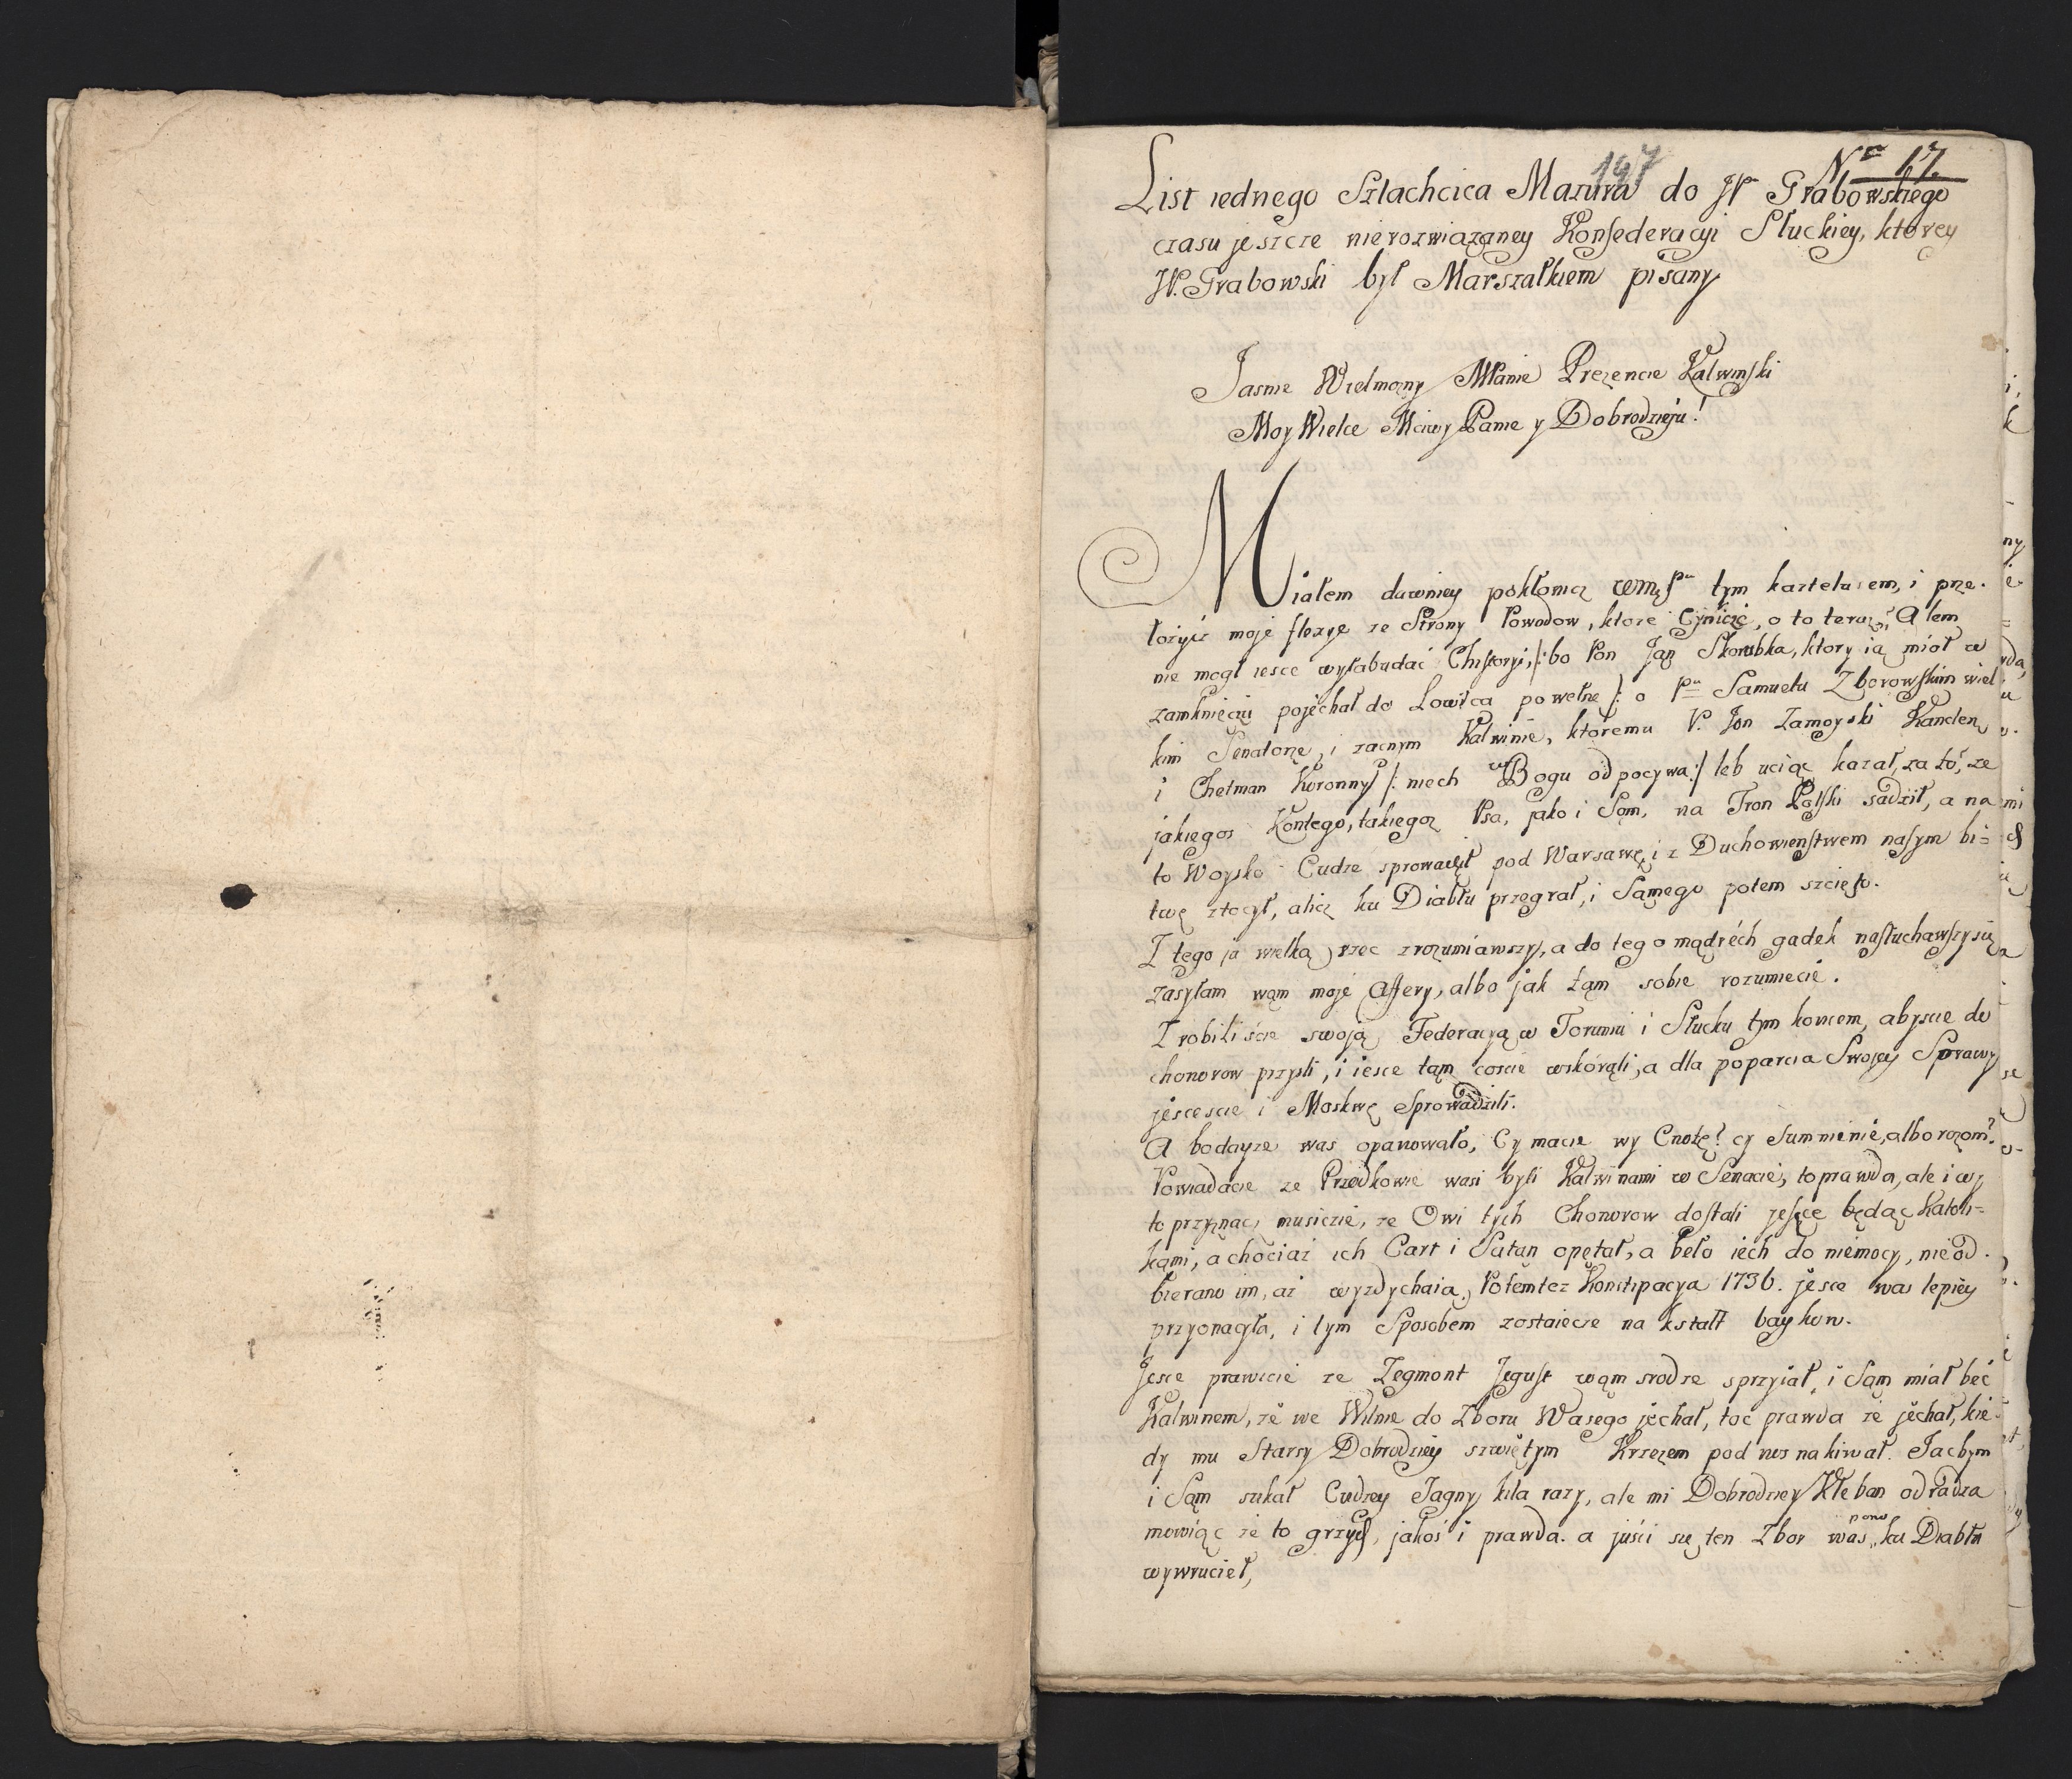 197
Nro 17.
List iednego Szlachcica Mazura do JP Grabowskiego
czasu jeszcze nierozwiązaney Konfederacyi Słuckiey, ktorey
JP. Grabowski był Marszałkiem pisany
Jasnie Wielmozny MPanie Prezencie Kalwinski
Moy Wielce Mciwy Panie y Dobrodzieju!
Miałem dawniey pokłomcz tym kartelusem, i prze-
łozyć moje flexye ze Strony Powodow, ktore Cynicie, o to teraz, Alem
nie mogł iesce wysłabudać Chistoryi, /: bo Pon Jan Skorubka, ktory ią mioł w
zamknięciu pojechał do Lowica po wełne :/ o Pu Samuelu Zborowskim wiel
kim Senatorze, i zacnym Kalwinie, ktoremu P. Jon Zamoyski Kanclerz
i Chetman Koronny /: niech w Bogu odpocywa :/ łeb uciąc kazał, za to, ze
jakiegos Kontego, takiegoz Psa, jako i Sąm, na Tron Polski sadził, a na
to Woysko Cudze sprowadził pod Warsawę, i z Duchowienstwem nasym bi=
twę ztocył, alicz ku Diabłu przegrał, i Samego potem szcięto.
Z tego ja wielką rzec zrozumiawszy, a do tego mądréch gadek nasłuchawszy się
zasyłam wąm moje Affery, albo jak tąm sobie rozumiecie.
Zrobiliscie swoją Federacyą w Toruniu i Słucku tym koncem, abyscie do
chonorow przysli, i iesce tąm coscie wskórąli, a dla poparcia Swojey Sprawy
jescescie i Moskwę Sprowadzili.
A bodayze was opanowało, Cy macie wy Cnotę? cy Summienié, albo rozom?
Powiadacie ze Przodkowie wasi byli Kalwinami w Senacié, to prawda, ale i wy
to przyznać musicié, ze Owi tych Chonorow dostali jesce będąc Katoli=
kąmi, a chociaz ich Cart i Satan opętał, a beło iech do niemocy, nie od-
bierano im, az wyzdychaią, Potemtez Konstipacya 1736. jesce was lepiey
przyonagła, i tym Sposobem zostaiecie na kstałt baykow.
Jesce prawicie ze Zegmont Jegust wąm srodze sprzyiał, i Sąm miał beć
Kalwinem, ze we Wilnie do Zboru Wasego jechał, toc prawda ze jechał, kie-
dy mu Starsy Dobrodziey szwiętym Krzezem pod nos nakiwał. Jacbym
i Sąm sukał Cudzey Jagny kila razy, ale mi Dobrodziey Kleban odradza
mowiąc ze to grzych, jakoś i prawda. a juści się ten Zbor was pono ku Diabłu
wywruciеł,